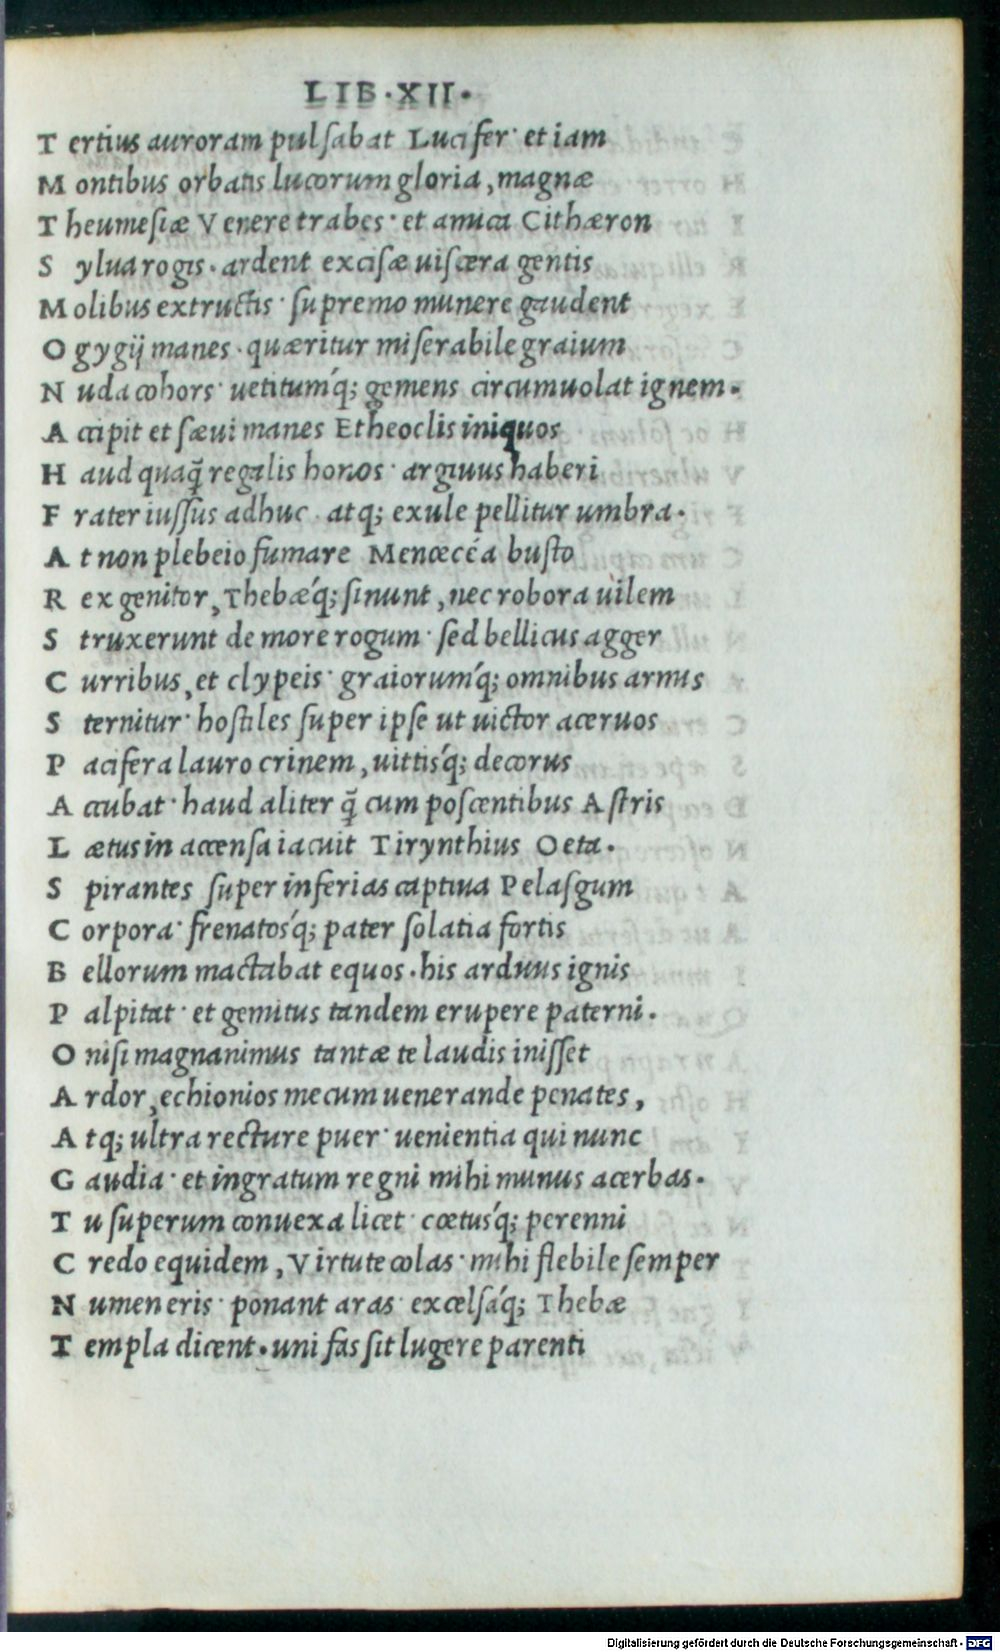 LIB·XII·
T ertius auroram pulſabat Lucifer· et iam
M ontibus orbatis lucorum gloria, magnæ
T heumeſiæ Venere trabes· et amica Cithæron
S ylua rogis· ardent exciſæ uiſcera gentis
M olibus extructis· ſupremo munere gaudent
O gygij manes· quæritur miſerabile graium
N uda cohors· uetitumq́; gemens circumuolat ignem·
A ccipit et ſæui manes Etheoclis iniquos
H aud quaq̃ regalis honos· argiuus haberi
F rater iuſſus adhuc· atq; exule pellitur umbra·
A t non plebeio fumare Menœcéa buſto
R ex genitor, Thebæq́; ſinunt, nec robora uilem
S truxerunt de more rogum· ſed bellicus agger
C urribus, et clypeis· graiorumq́; omnibus armis
S ternitur· hoſtiles ſuper ipſe ut uictor aceruos
P acifera lauro crinem, uittisq́; decorus
A ccubat· haud aliter q̃ cum poſcentibus Aſtris
L ætus in accenſa iacuit Tirynthius Oeta·
S pirantes ſuper inferias captiua Pelaſgum
C orpora· frenatosq́; pater ſolatia fortis
B ellorum mactabat equos· his arduus ignis
P alpitat· et gemitus tandem erupere paterni·
O niſi magnanimus tantæ te laudis iniſſet
A rdor, echionios mecum uenerande penates,
A tq; ultra recture puer· uenientia qui nunc
G audia· et ingratum regni mihi munus acerbas·
T u ſuperum conuexa licet· cœtusq́; perenni
C redo equidem, Virtute colas· mihi flebile ſemper
N umen eris· ponant aras· excelſáq; Thebæ
T empla dicent· uni fas ſit lugere parenti
Digitalisierung gefördert durch die Deutsche Forschungsgemeinschaft - DFG